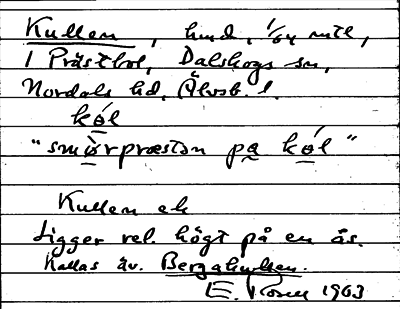 Kullen, hmd, 1/64 mtl,
i Prästbol, Dalskogs sn,
Nordals hd, Älvsb. l.
køl
"smørpræstən pa køl"
Kullen ek
Ligger rel. högt på en ås.
Kallas äv. Bergakullen.
E. Rosell 1903